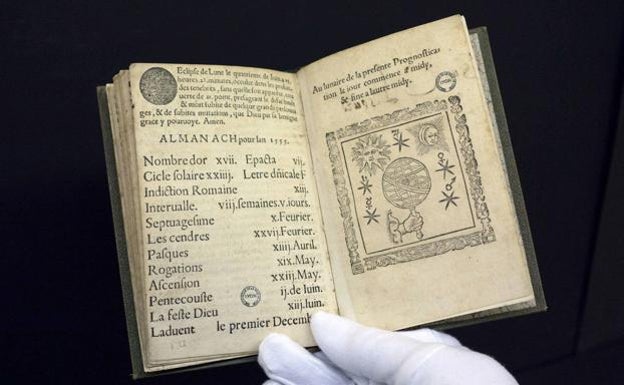 Eclipse de Lune le quatrieme de Iuin à 15.
heures 21. minutes, occulte dens les profun-
des tenebres, sans quelle soy apparoir, cou-
uerte de 21. points, presageant le default
& mutatiõ subite de quelque grand personna
ges, & de subites mutations, que Dieu par sa benigne
grace y pouruoye. Amen.
ALMANACH pour lan 1555.
Nombre dor xvii. Epacta vij.
Cicle solaire xxiij. Letre dñicale F
Indiction Romaine xiij.
Interualle. viij. semaines. v. iours.
Septuagesime x. Feurier.
Les cendres xxvij. Feurier.
Pasques xiiij. Auril.
Rogations xix. May.
Ascension xxiij. May.
Pentecouste ij. de Iuin.
La feste Dieu xiij. Iuin.
Laduent le premier Decemb
Au lunaire de la presente Prognostica-
tion le iour commence a midy,
& fine a lautre midy.